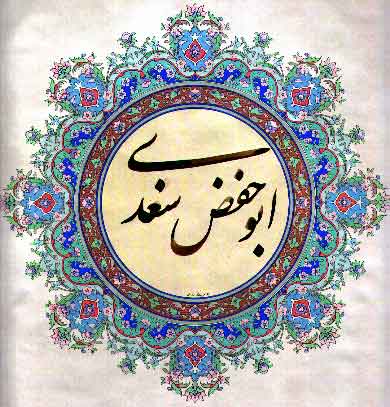 ابوحفض سغدی